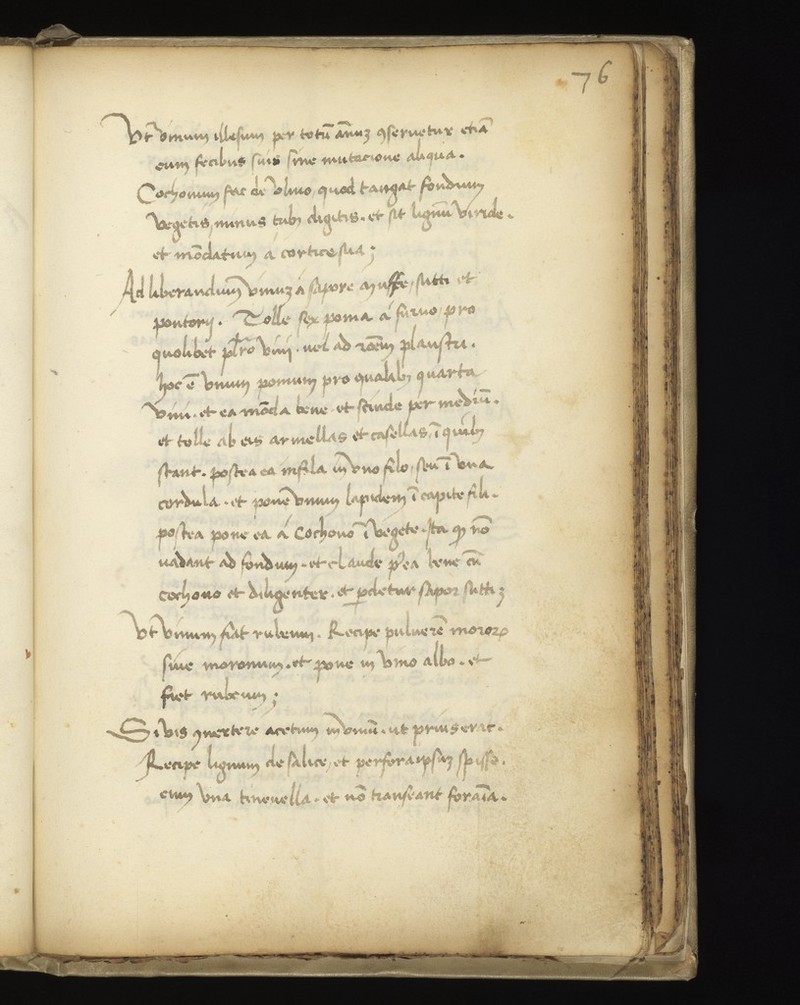 76
Vt vinum illesum per totũ ãnuʒ ꝯseruetur etiã
cum fecibus suis sine mutacione aliqua.
Cochonum fac de Vlmo, quod tangat fondum
vegetis, minus tribꝫ digitis. et sit lignũ viride.
et mõdatum á cortice sua;
Ad liberandum vinuʒ á sapore muffe, sutti et
pontorij. Tolle sex poma á furno, pro
quolibet vini. uel ad plaustri.
hoc ẽ vnum pomum pro qualibꝫ quarta
vini. et ea mõda bene. et scinde per mediũ.
et tolle ab eis armellas et casellas, ĩ quibꝫ
stant. postea ea infila in vno filo, seu ĩ vna
cordula. et pone vnum lapidem ĩ capite fili.
postea pone ea á Cochono ĩ vegete. Ita ꝙ nõ
uadant ad fondum. et claude pꝰea bene cũ
cochono et diligenter. et ꝑdetur sapor sutti;
Vt vinum fiat rubeum. Recipe puluerẽ mororꝝ
siue moronum. et pone in vino albo. et
fiet rubeum;
Si vis ꝯuertere acetum in vinũ. ut prius erat.
Recipe lignum de salice, et perfora ipsuʒ spisse.
cum vna tineuella. et nõ transeant foraĩa.